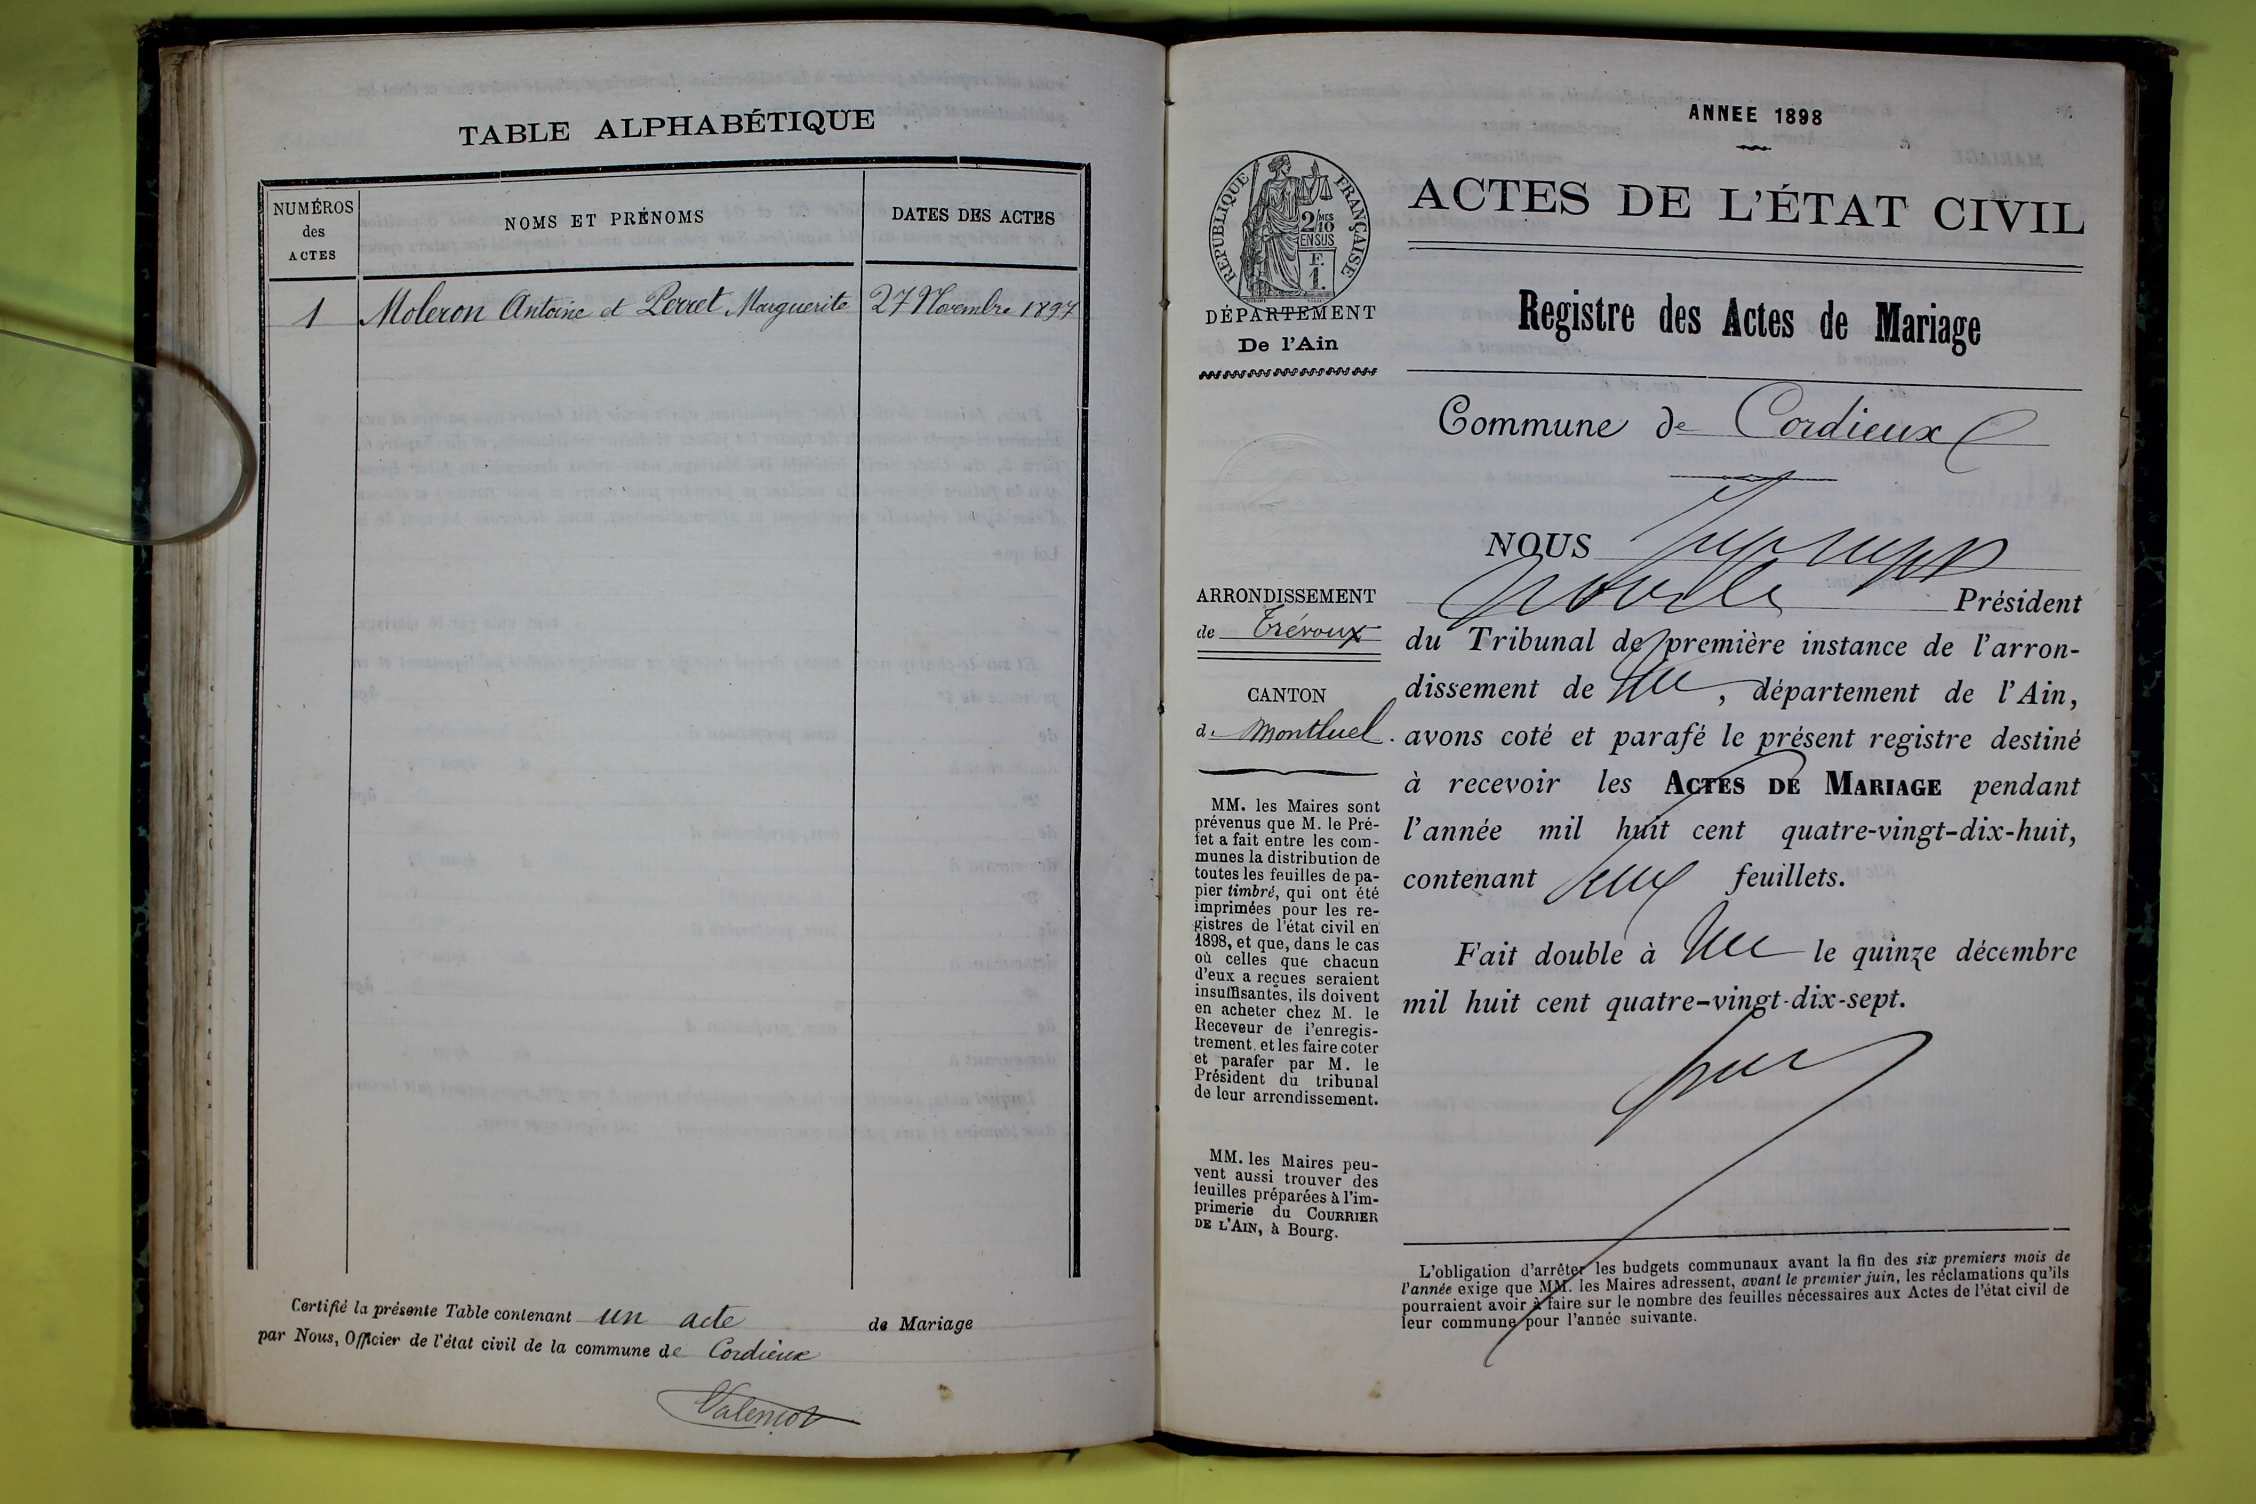 TABLE ALPHABÉTIQUE
NUMÉROS
des
ACTES
NOMS ET PRÉNOMS
DATES DES ACTES
1 Moleron Antoine et Perret Marguerite 27 Novembre 1897
Certifié la présente Table contenant un acte de Mariage
par Nous, Officier de l'état civil de la commune de Cordieux
ANNEE 1898
RÉPUBLIQUE FRANÇAISE
2/MES
10
EN SUS
F.
1.
DÉPARTEMENT
De l'Ain
ACTES DE L'ÉTAT CIVIL
Registre des Actes de Mariage
Commune de Cordieux
ARRONDISSEMENT
de Trévoux
CANTON
de Montluel.
MM. les Maires sont
prévenus que M. le Pré-
fet a fait entre les com-
munes la distribution de
toutes les feuilles de pa-
pier timbré, qui ont été
imprimées pour les re-
gistres de l'état civil en
1898, et que, dans le cas
où celles que chacun
d'eux a reçues seraient
insuffisantes, ils doivent
en acheter chez M. le
Receveur de l'enregis-
trement, et les faire coter
et parafer par M. le
Président du tribunal
de leur arrondissement.
MM. les Maires peu-
vent aussi trouver des
feuilles préparées à l'im-
primerie du COURRIER
DE L'AIN, à Bourg.
NOUS
Président
du Tribunal de première instance de l'arron-
dissement de , département de l'Ain,
avons coté et parafé le présent registre destiné
à recevoir les ACTES DE MARIAGE pendant
l'année mil huit cent quatre-vingt-dix-huit,
contenant feuillets.
Fait double à le quinze décembre
mil huit cent quatre-vingt-dix-sept.
L'obligation d'arrêter les budgets communaux avant la fin des six premiers mois de
l'année exige que MM. les Maires adressent, avant le premier juin, les réclamations qu'ils
pourraient avoir à faire sur le nombre des feuilles nécessaires aux Actes de l'état civil de
leur commune pour l'année suivante.